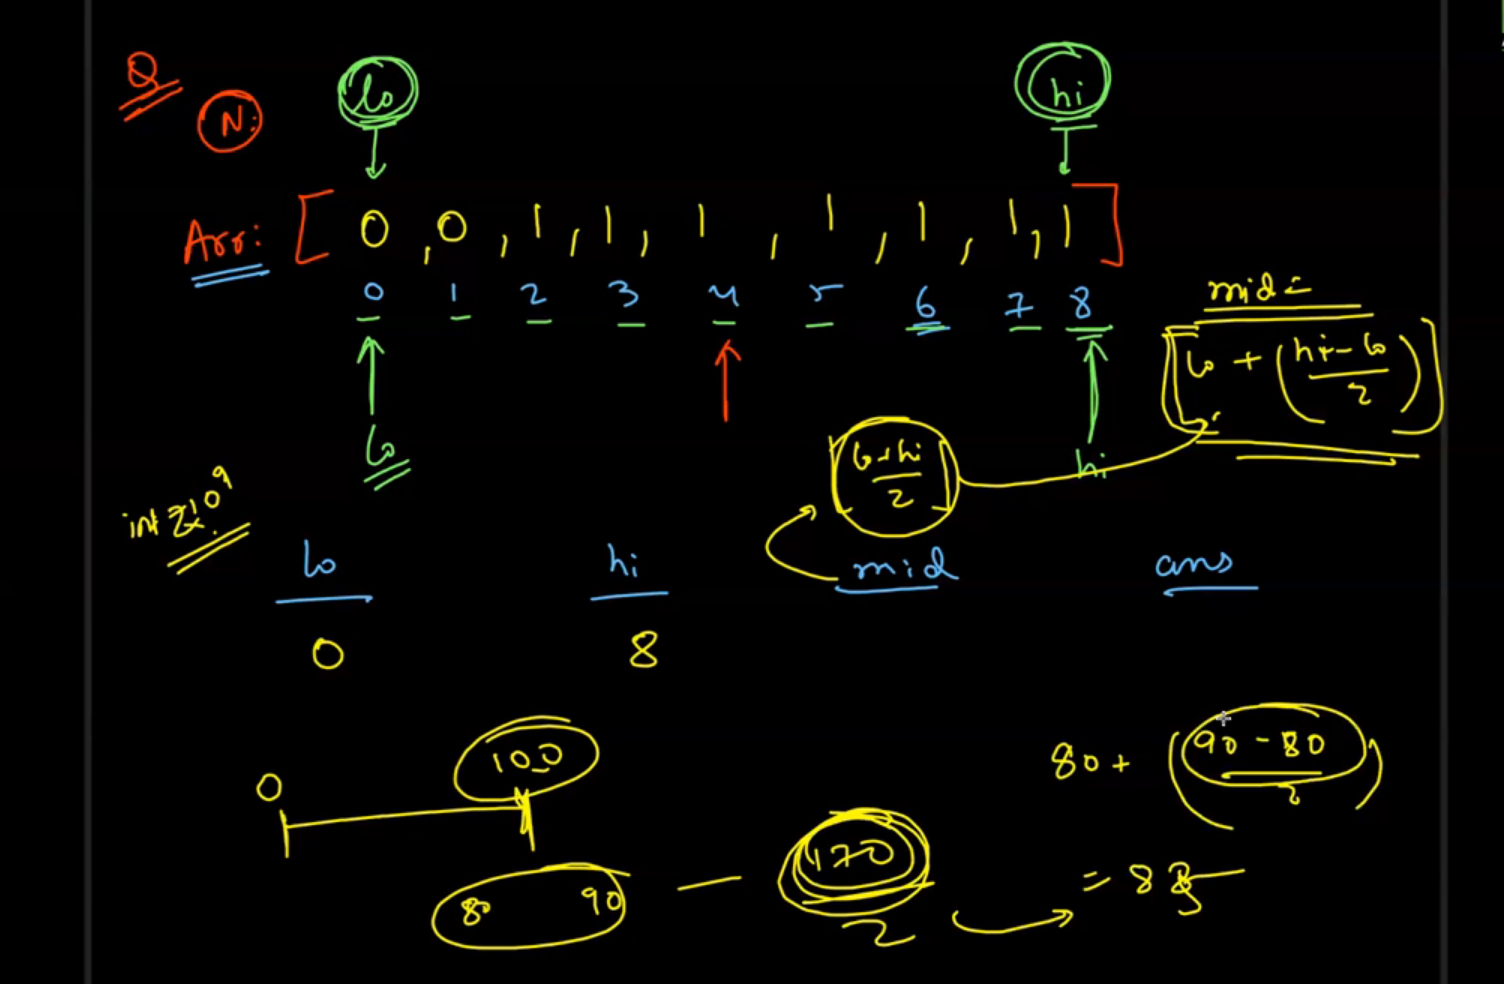 Q
N:
lo
hi
Arr: [ 0 , 0 , 1 , 1 , 1 , 1 , 1 , 1 , 1 ]
0 1 2 3 4 5 6 7 8
mid =
[ lo + ( hi - lo / 2 ) ]
lo
lo + hi / 2
hi
int 2x10^9
lo hi mid ans
0 8
0 100
80 + ( 90 - 80 / 2 )
80 90 — 170 / 2
= 85